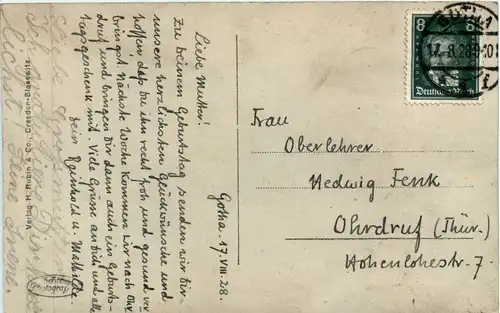 Gotha. 17.VIII.28.
Liebe Mutter!
Zu deinem Geburtstag senden wir dir
unsere herzlichsten Glückwünsche und
hoffen daß du ihn recht froh und gesund ver
bringst. Nächste Woche kommen wir nach Ohr
druf und bringen Dir dann auch ein Geburts-
tagsgeschenk mit. Viele Grüsse an dich und alle
Dein Reinhold u. Mathilde.
Verlag H. Rubin & Co., Dresden-Blasewitz
Echte
Photograph
8 8
Deutsches Reich
GOTHA 1
17.8.28.9-10
Frau
Oberlehrer
Hedwig Fenk
Ohrdruf (Thür.)
Hohenlohestr. 7.